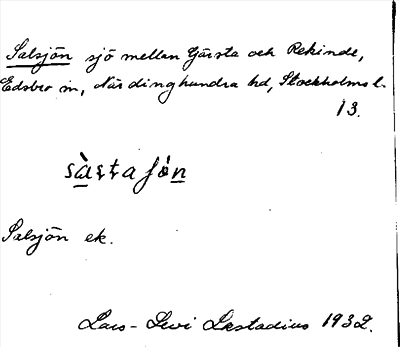 Salsjön sjö mellan Gärsta och Rekinde,
Edsbro sn, Närdinghundra hd, Stockholms l.
13.
Salsjön ek.
Lars-Levi Læstadius 1932.